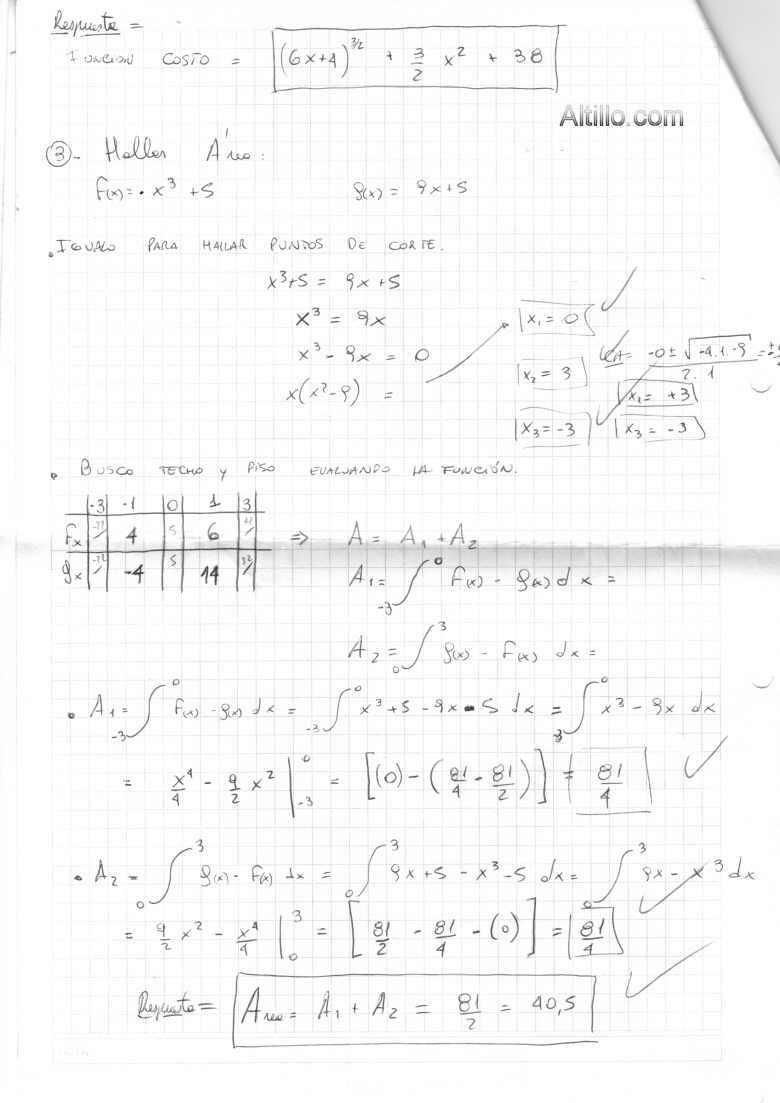 Respuesta =
FUNCION COSTO = (6x+4)^3/2 + 3/2 x² + 38
Altillo.com
③- Hallar Área:
F(x) = x³ + 5 g(x) = 9x+5
. IGUALO PARA HALLAR PUNTOS DE CORTE.
x³+5 = 9x+5
x³ = 9x x₁ = 0
x³ - 9x = 0 -0 ± √-4.1.-9 =
x₂ = 3 2.1
x(x²-9) = x₁ = +3
x₃ = -3 x₃ = -3
. BUSCO TECHO y PISO EVALUANDO LA FUNCIÓN.
-3 | -1 | 0 | 1 | 3
Fx | 4 | 5 | 6 ⇒ A = A₁ + A₂
gx | -4 | 5 | 14 | 32
A₁ = ∫₋₃⁰ F(x) - g(x) dx =
A₂ = ∫₀³ g(x) - F(x) dx =
• A₁ = ∫₋₃⁰ F(x) - g(x) dx = ∫₋₃⁰ x³+5 -9x - 5 dx = ∫₋₃⁰ x³ - 9x dx
= x⁴/4 - 9/2 x² |₋₃⁰ = [(0) - (81/4 - 81/2)] = 81/4
• A₂ = ∫₀³ g(x) - F(x) dx = ∫₀³ 9x+5 - x³ -5 dx = ∫₀³ 9x - x³ dx
= 9/2 x² - x⁴/4 |₀³ = [81/2 - 81/4 - (0)] = 81/4
Respuesta = Area = A₁ + A₂ = 81/2 = 40,5